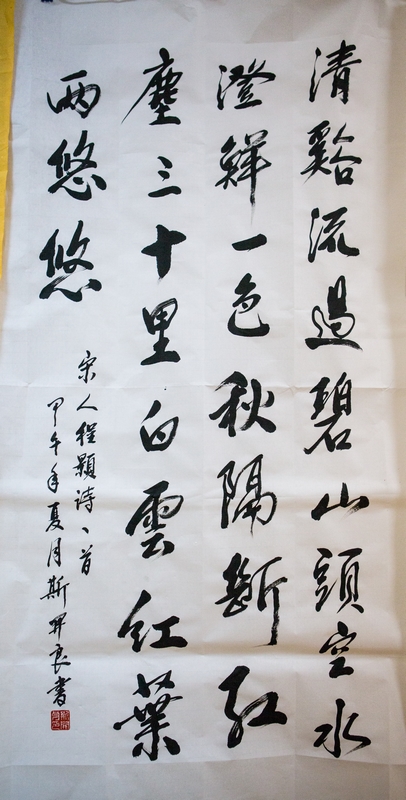 清谿流過碧山頭空水
澄鮮一色秋隔斷紅
塵三十里白雲紅葉
兩悠悠
宋人程顥詩一首
甲午年夏月斯良書